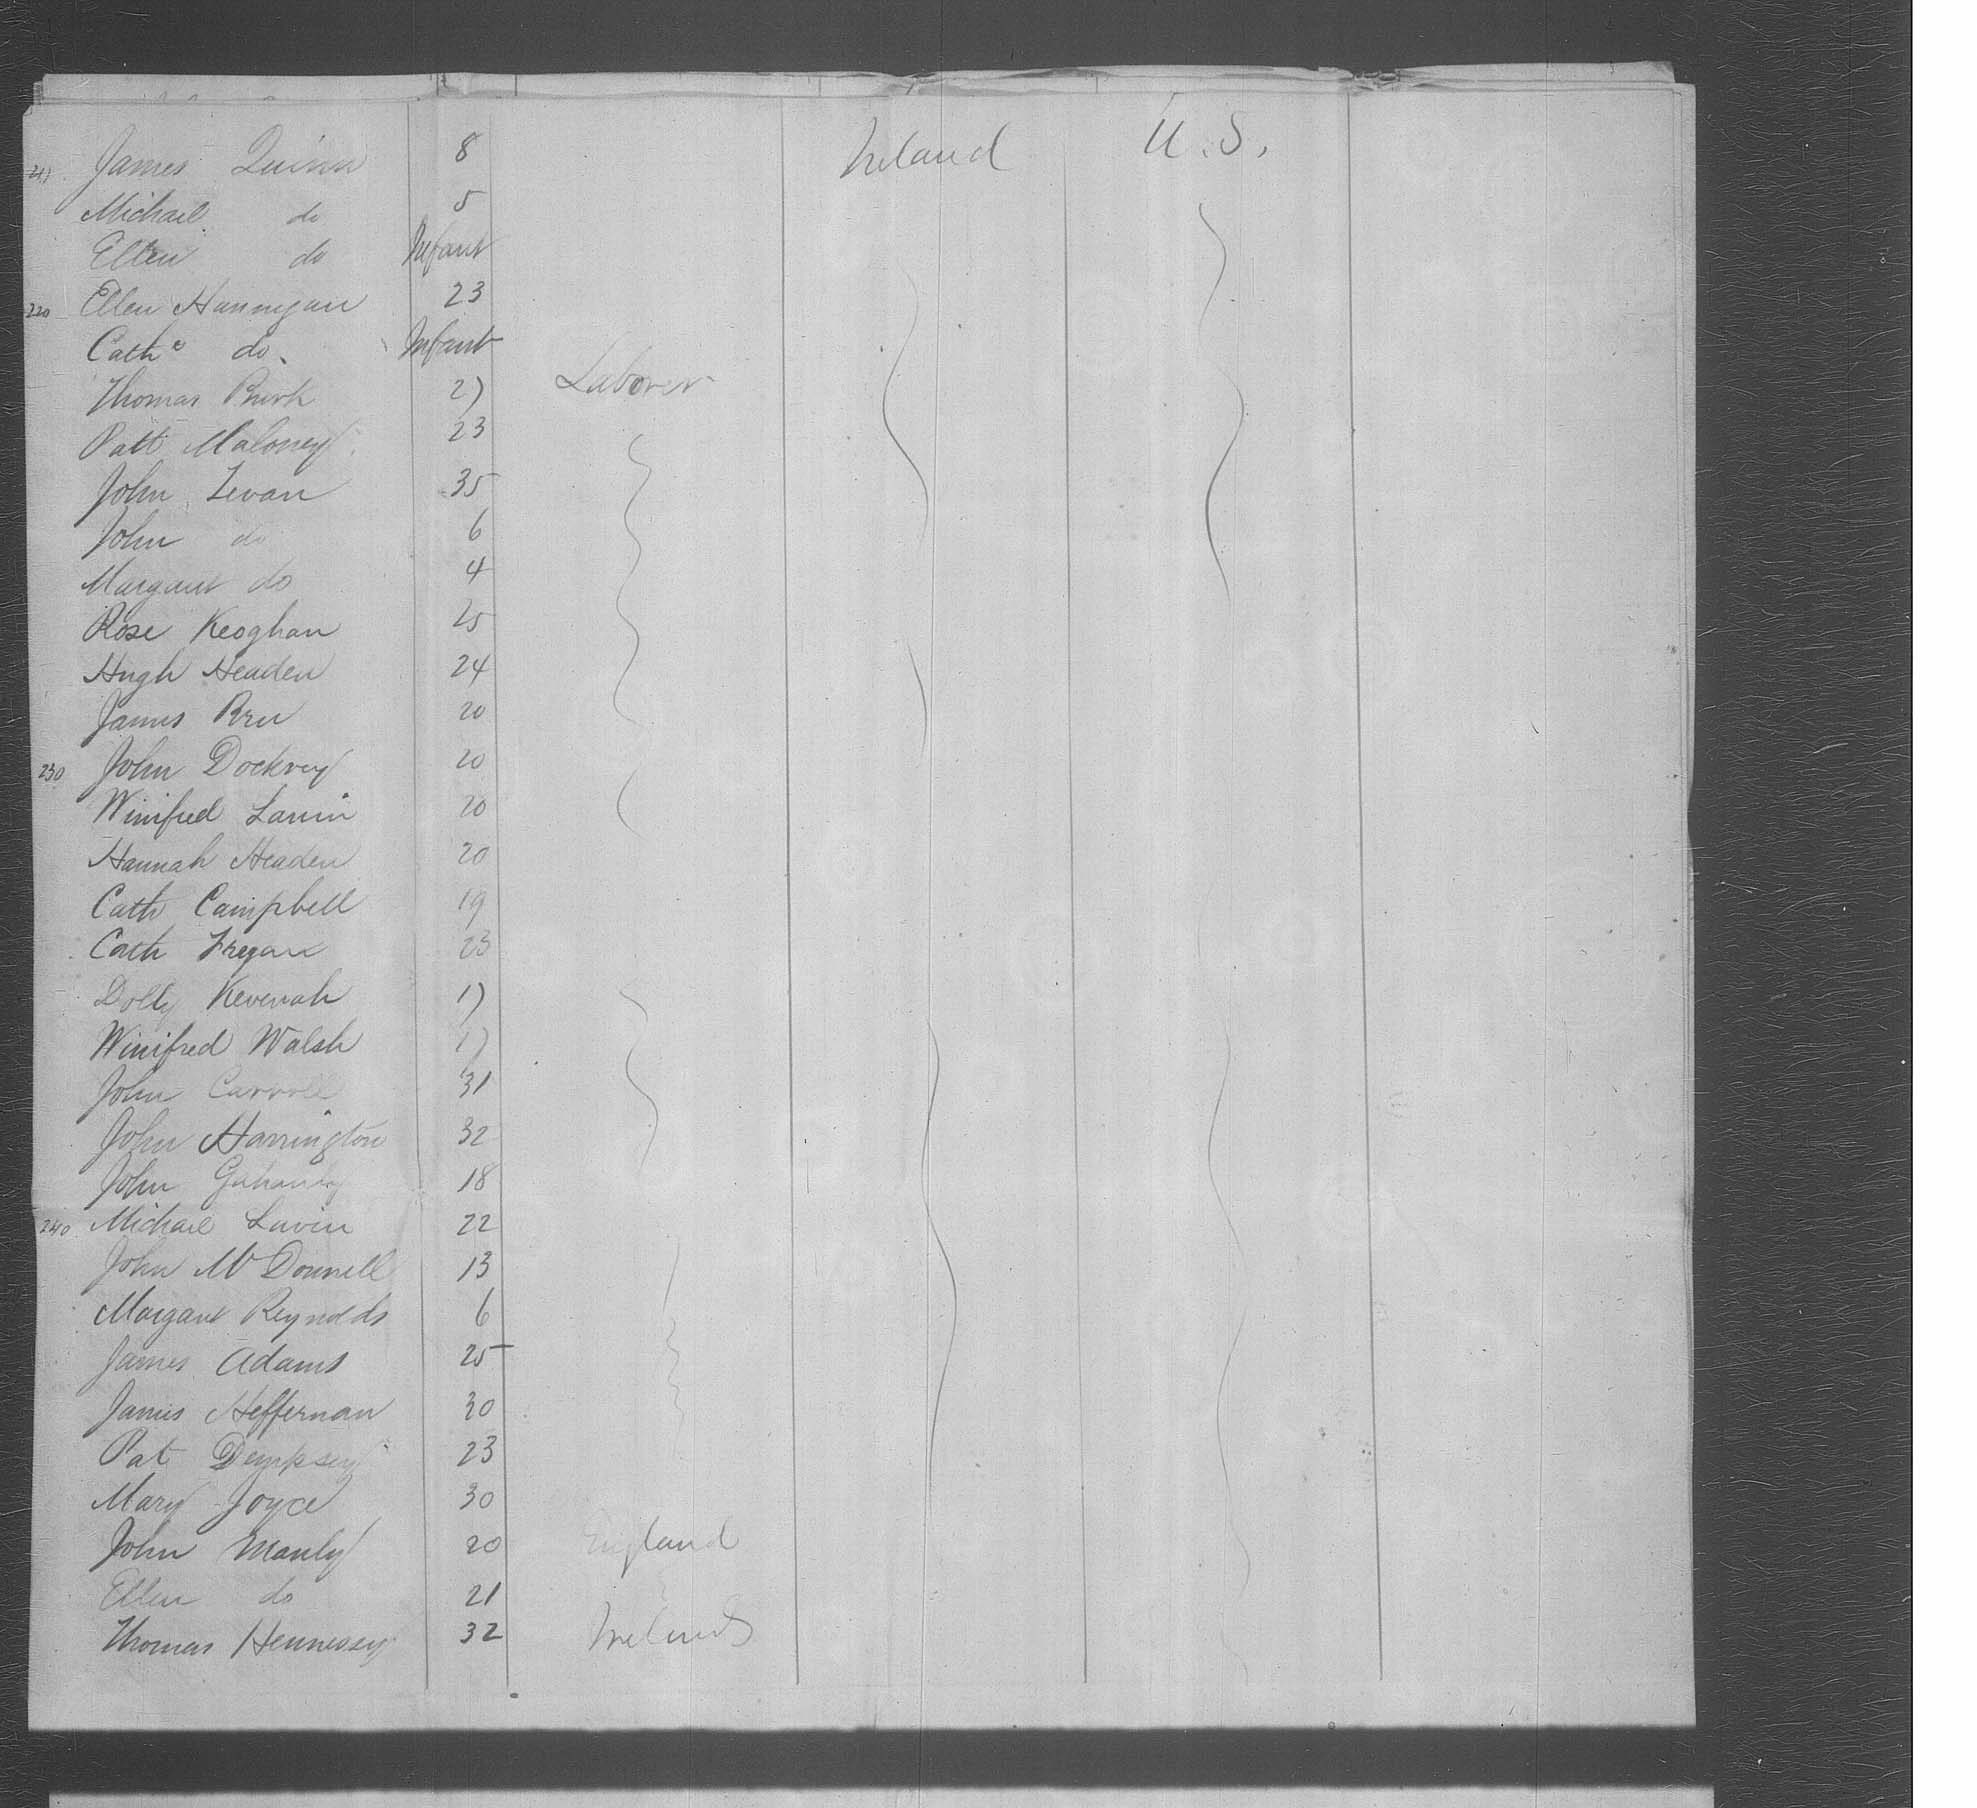 217 James Quinn 8 Ireland U.S.
Michael do 5
Ellen do Infant
220 Ellen Hannegan 23
Cathe do. Infant
Thomas Burk 27 Laborer
Patt Maloney 23
John 35
John do 6
Margaret do 4
Rose Keoghan 25
Hugh Headen 24
James 20
230 John Dockrey 20
Winifred Lavin 20
Hannah Headen 20
Cath Campbell 19
Cath 23
Dolly Kevenah 17
Winifred Walsh 17
John Carroll 31
John Harrington 32
John 18
240 Michael Lavin 22
John McDonnell 13
Margaret Reynolds 6
James Adams 25
James Heffernan 30
Pat Dempsey 23
Mary Joyce 30
John Manly 20 England
Ellen do 21
Thomas Hennessy 32 Ireland